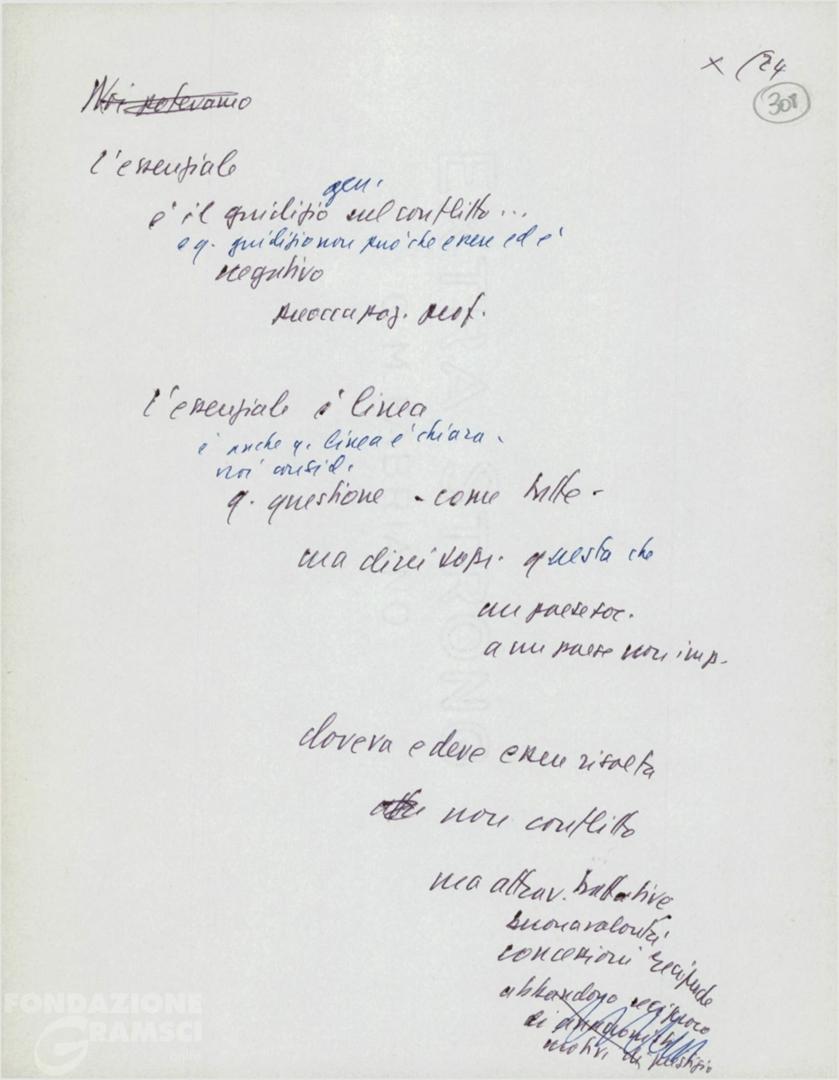 x (24
301
Noi potevamo
l'essenziale
è il giudizio gen. sul conflitto...
e q. giudizio non può che essere ed è
negativo
preoccupaz. prof.
l'essenziale è linea
è anche q. linea è chiara -
noi consid.
q. questione - come tutte -
ma direi sopr. questa che
un paese soc.
a un paese non imp.
doveva e deve essere risolta
non conflitto
ma attrav. trattative
buona volontà
concessioni reciproche
abbandono reciproco
di
motivi di prestigio
FONDAZIONE
GRAMSCI